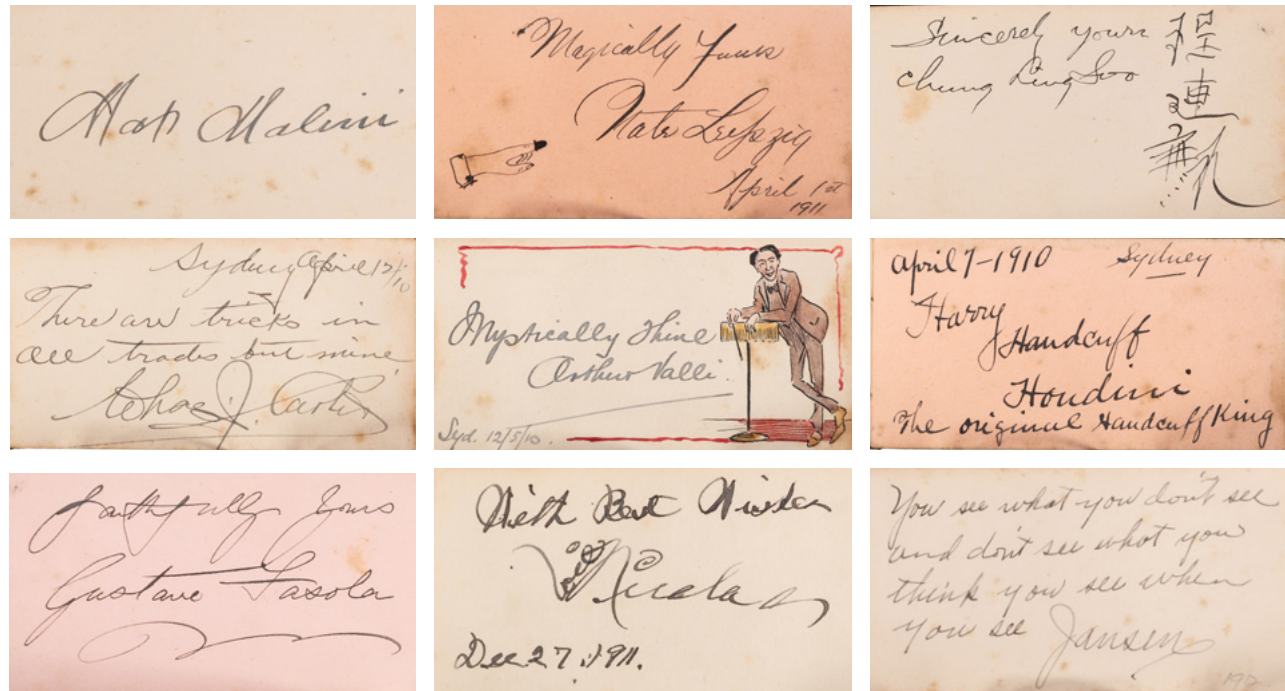 Max Malini
Magically Yours
Nate Leipzig
April 1st
1911
Sincerely yours
Chung Ling Soo
程連蘇
Sydney April 12/10
There are tricks in
all trades but mine
Chas J. Carter
Mystically Thine
Arthur Valli.
Syd. 12/5/10.
April 7-1910 Sydney
Harry
Handcuff
Houdini
The original Handcuff King
Faithfully Yours
Gustave Fasola
With Best Wishes
Nicola
Dec 27. 1911.
You see what you don't see
and don't see what you
think you see when
you see Jansen